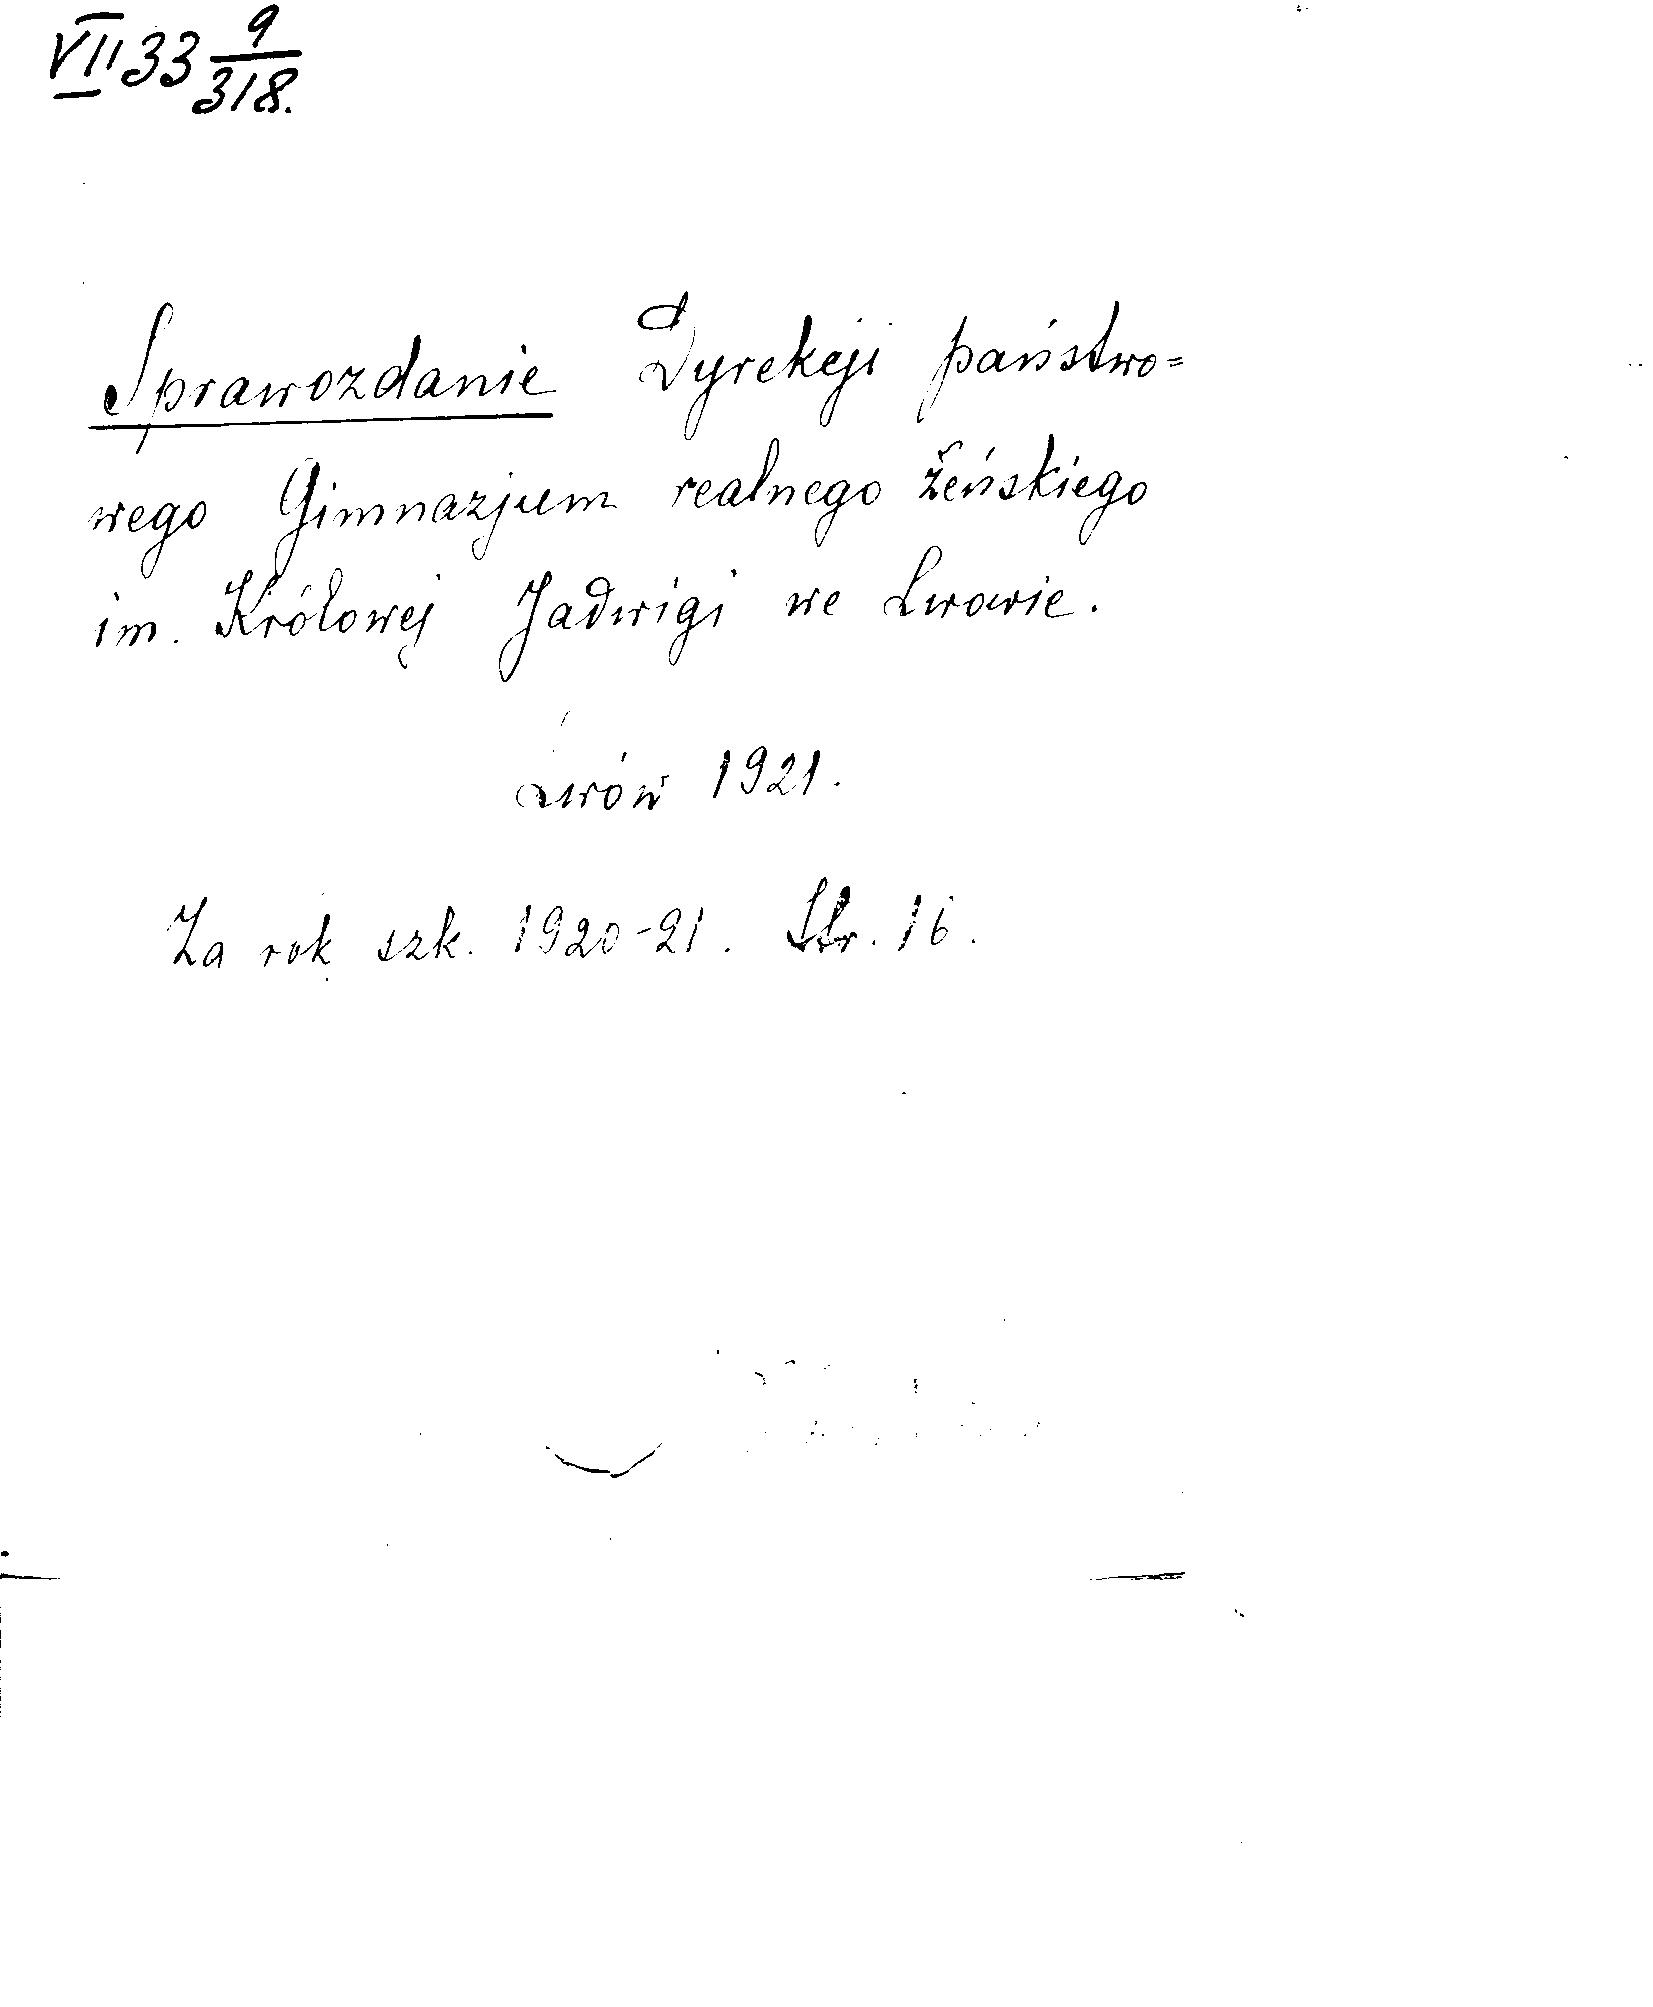 VII 33 9/318.
Sprawozdanie Dyrekcji państwo=
wego Gimnazjum realnego żeńskiego
im. Królowej Jadwigi we Lwowie.
Lwów 1921.
Za rok szk. 1920-21. Str. 16.